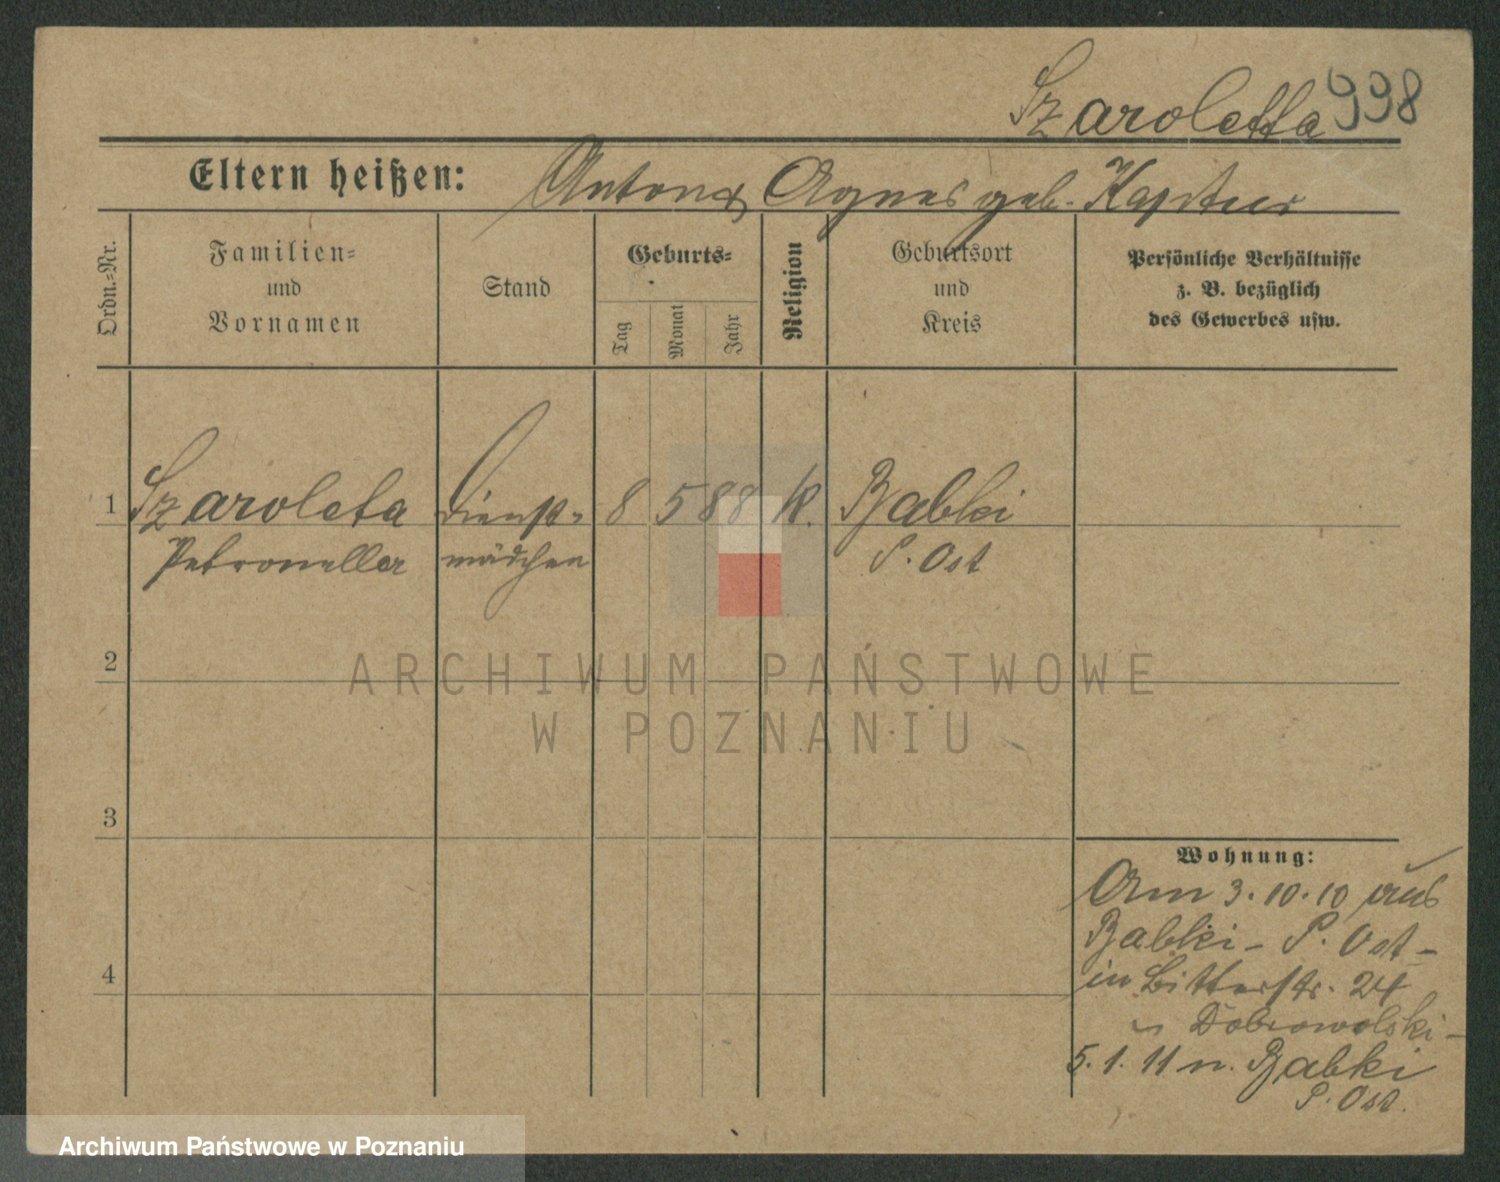 Szaroletta 998
Eltern heißen: Anton & Agnes geb. Kaptur
Ordn.-Nr.
Familien-
und
Vornamen
Stand
Geburts-
Tag
Monat
Jahr
Religion
Geburtsort
und
Kreis
Persönliche Verhältnisse
z. B. bezüglich
des Gewerbes usw.
1 Szaroleta Dienst- 8 5 88 k. Babki
Petronella mädchen P. Ost
2
3
4
ARCHIWUM PAŃSTWOWE
W POZNANIU
Wohnung:
Am 3.10.10 aus
Babki - P. Ost -
in Bitterstr. 24
Dobrowolski -
5.1.11 n. Babki
P. Ost.
Archiwum Państwowe w Poznaniu